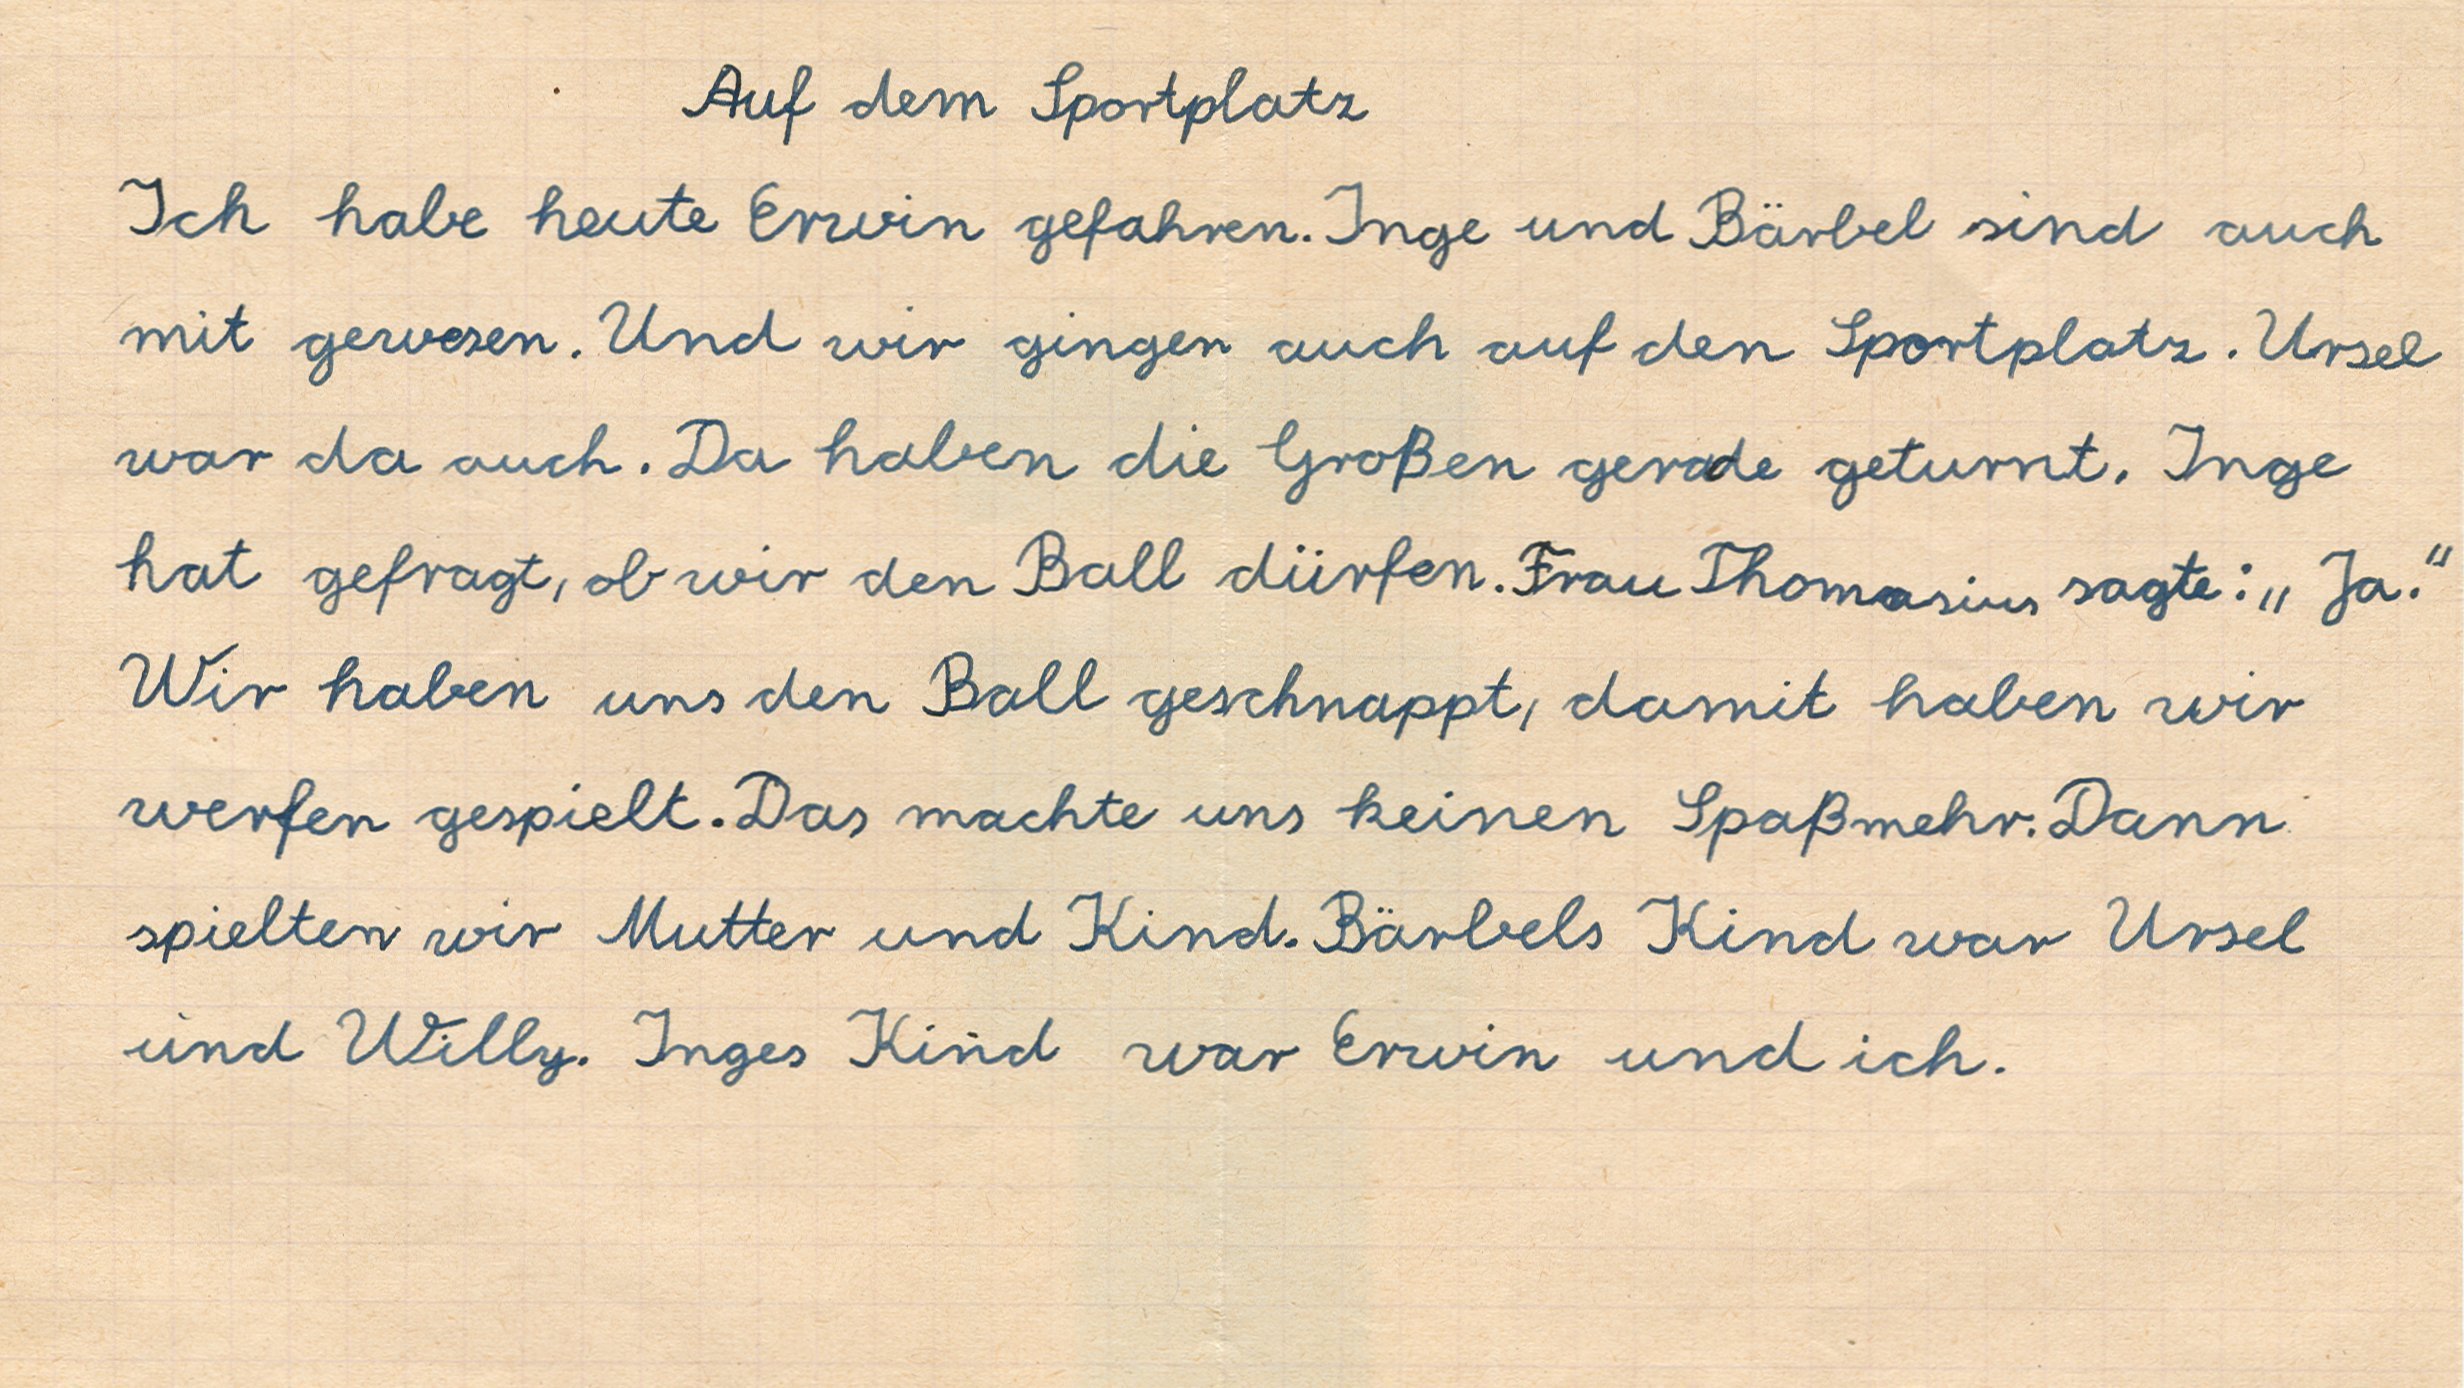 Auf dem Sportplatz
Ich habe heute Erwin gefahren. Inge und Bärbel sind auch
mit gewesen. Und wir gingen auch auf den Sportplatz. Ursel
war da auch. Da haben die Großen gerade geturnt. Inge
hat gefragt, ob wir den Ball dürfen. Frau Thomasius sagte: „Ja.“
Wir haben uns den Ball geschnappt, damit haben wir
werfen gespielt. Das machte uns keinen Spaßmehr. Dann
spielten wir Mutter und Kind. Bärbels Kind war Ursel
und Willy. Inges Kind war Erwin und ich.